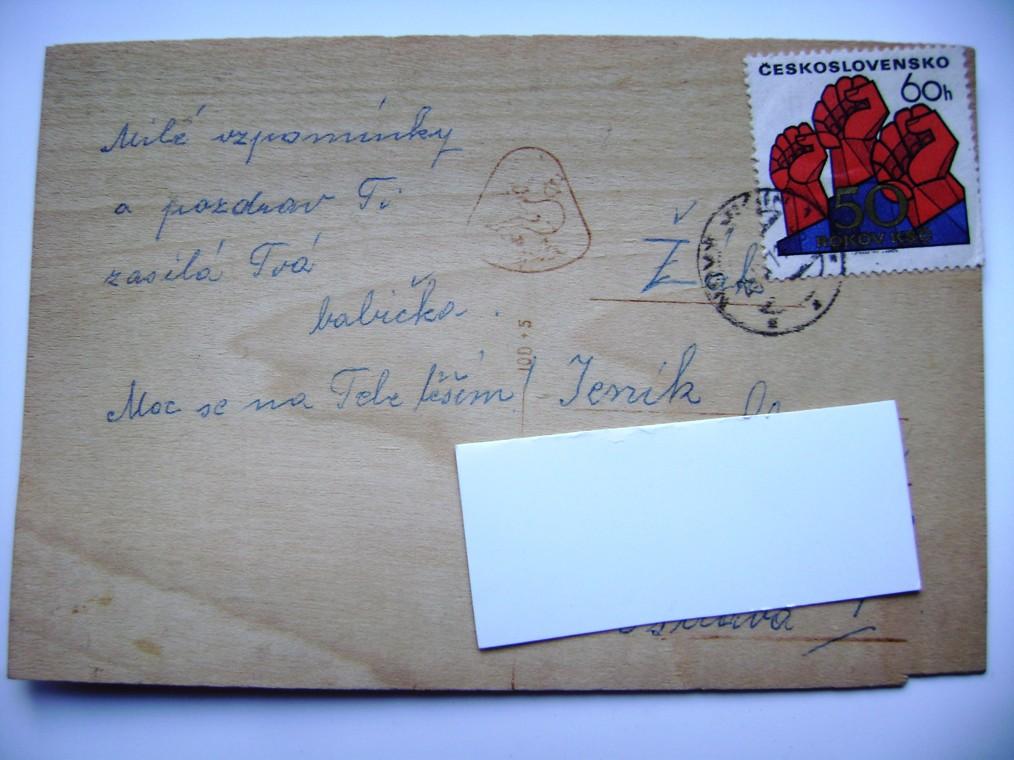 Milé vzpomínky
a pozdrav Ti
zasílá Tvá
babička.
Moc se na Tebe těším!
ČESKOSLOVENSKO
60h
50
ROKOV KSČ
Ž
Jeník
Ostrava